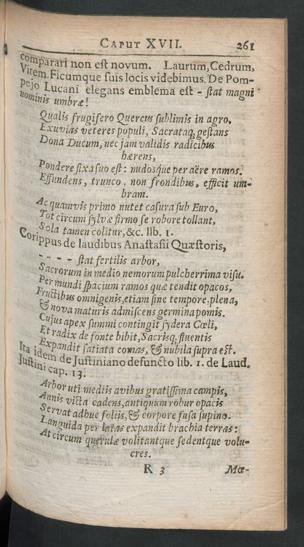 CAPUT XVII. 261
comparari non est novum. Laurum, Cedrum,
Vitem, Ficumque suis locis videbimus. De Pom-
pejo Lucani elegans emblema est - stat magni
nominis umbra!
Qualis frugifero Quercus sublimis in agro,
Exuvias veteres populi, Sacrataq; gestans
Dona Ducum, nec jam validis radicibus
hærens,
Pondere fixa suo est: nudosque per aëre ramos.
Effundens, trunco, non frondibus, efficit um-
bram.
Ac quamvis primo nutet casura sub Euro,
Tot circum sylvæ firmo se robore tollant,
Sola tamen colitur, &c. lib. 1.
Corippus de laudibus Anastasii Quæstoris,
- - - - stat fertilis arbor,
Sacrorum in medio nemorum pulcherrima visu.
Per mundi spacium ramos quæ tendit opacos,
Fructibus omnigenis, etiam sine tempore, plena,
& nova maturis admiscens germina pomis.
Cujus apex summi contingit sydera Cœli,
Et radix de fonte bibit, Sacrisq; fluentis
Expandit satiata comas, & nubila supra est.
Ita idem de Justiniano defuncto lib. 1. de Laud.
Justini cap. 13:
Arbor uti mediis avibus gratissima campis,
Annis victa cadens, antiquum robur opacis
Servat adhuc foliis, & corpore fusa supino.
Languida per latas expandit brachia terras:
At circum querulæ volitantque sedentque volu-
cres.
R 3 Mœ-